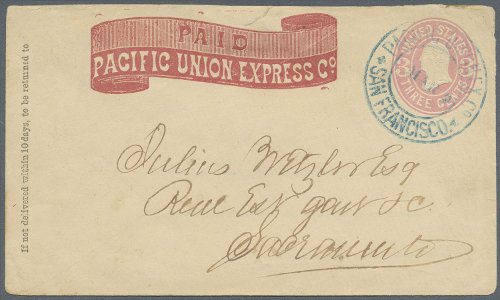 PAID
PACIFIC UNION EXPRESS Co.
UNITED STATES
THREE CENTS
SAN FRANCISCO
If not delivered within 10 days, to be returned to
Julius Wetzler Esq
Real Est
Sacramento